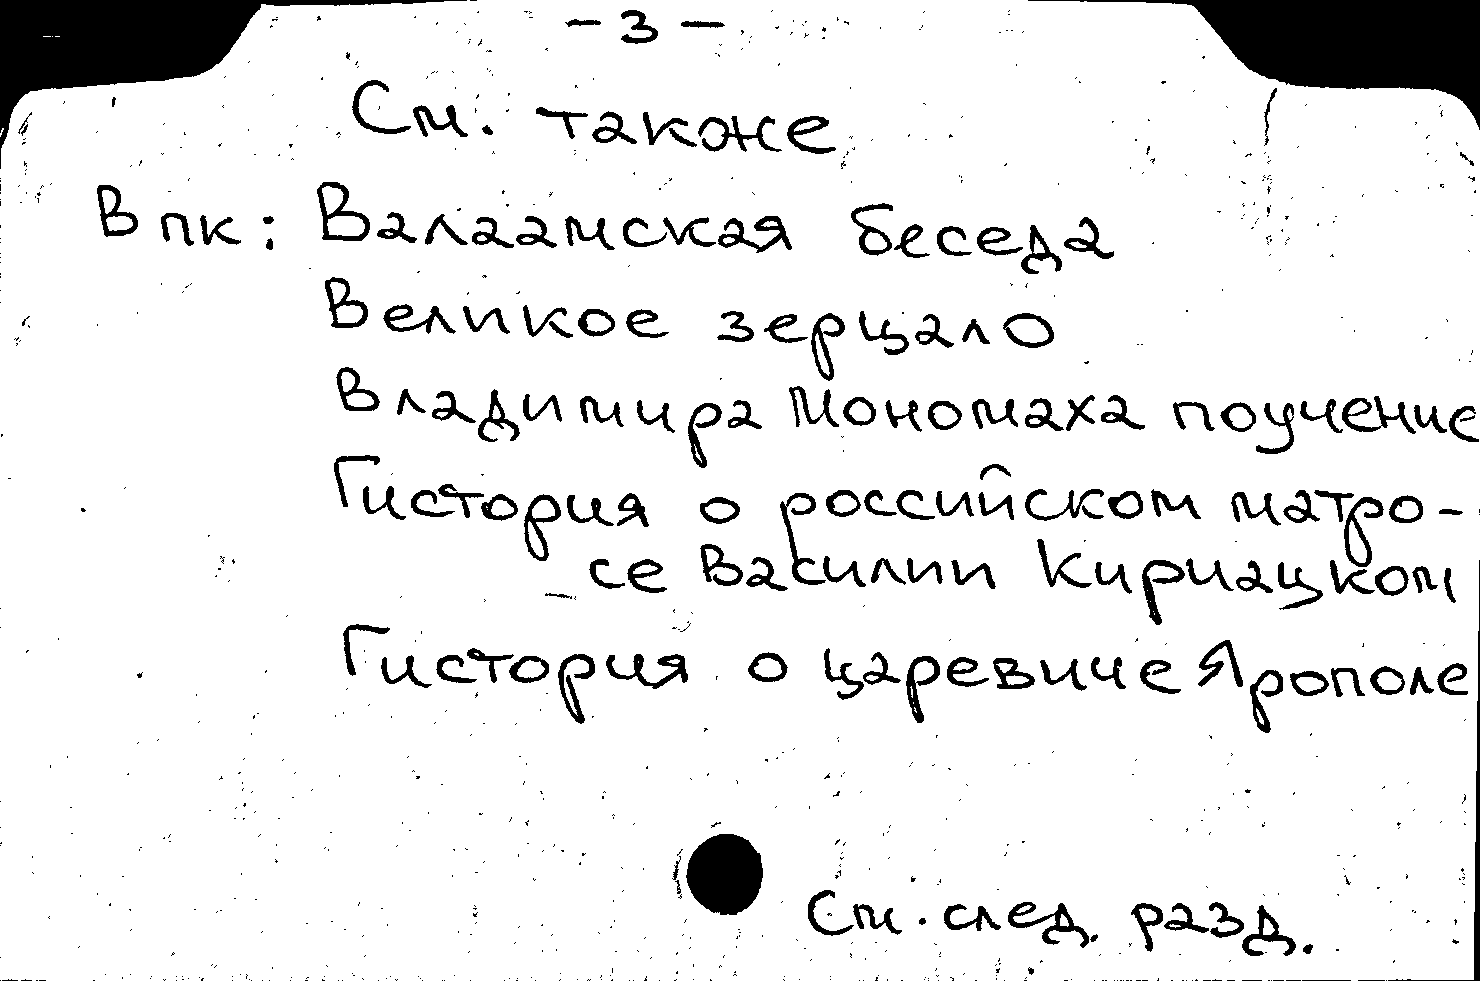 - 3 -
См. также
В пк: Валаамская беседа
Великое зерцало
Владимира Мономаха поучение
Гистория о российском матро-
се Василии Кириацком
Гистория о царевиче Ярополе
См. след. разд.